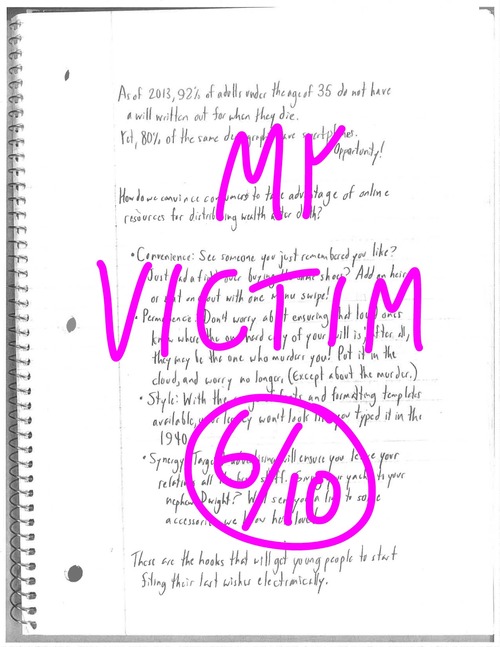 As of 2013, 92% of adults under the age of 35 do not have
a will written out for when they die.
Yet, 80% of the same have smartphones.
Opportunity!
MY
How do we convince consumers to take advantage of online
resources for distributing wealth after death?
• Convenience: See someone you just remembered you like?
Just had a fight over buying the same shoes? Add an heir
or out with one menu swipe!
VICTIM
• Permanence: Don't worry about ensuring that loved ones
know where the hard copy of your will is. After all,
they may be the one who murders you! Put it in the
cloud, and worry no longer. (Except about the murder.)
• Style: With the and formatting templates
available, your legacy won't look like you typed it in the
1940
6/10
• Synergy: Target advertising will ensure you leave your
relatives all stuff. your yacht to your
nephew Dwight? We'll send you a link to some
accessories we know he'll love.
These are the hooks that will get young people to start
filing their last wishes electronically.